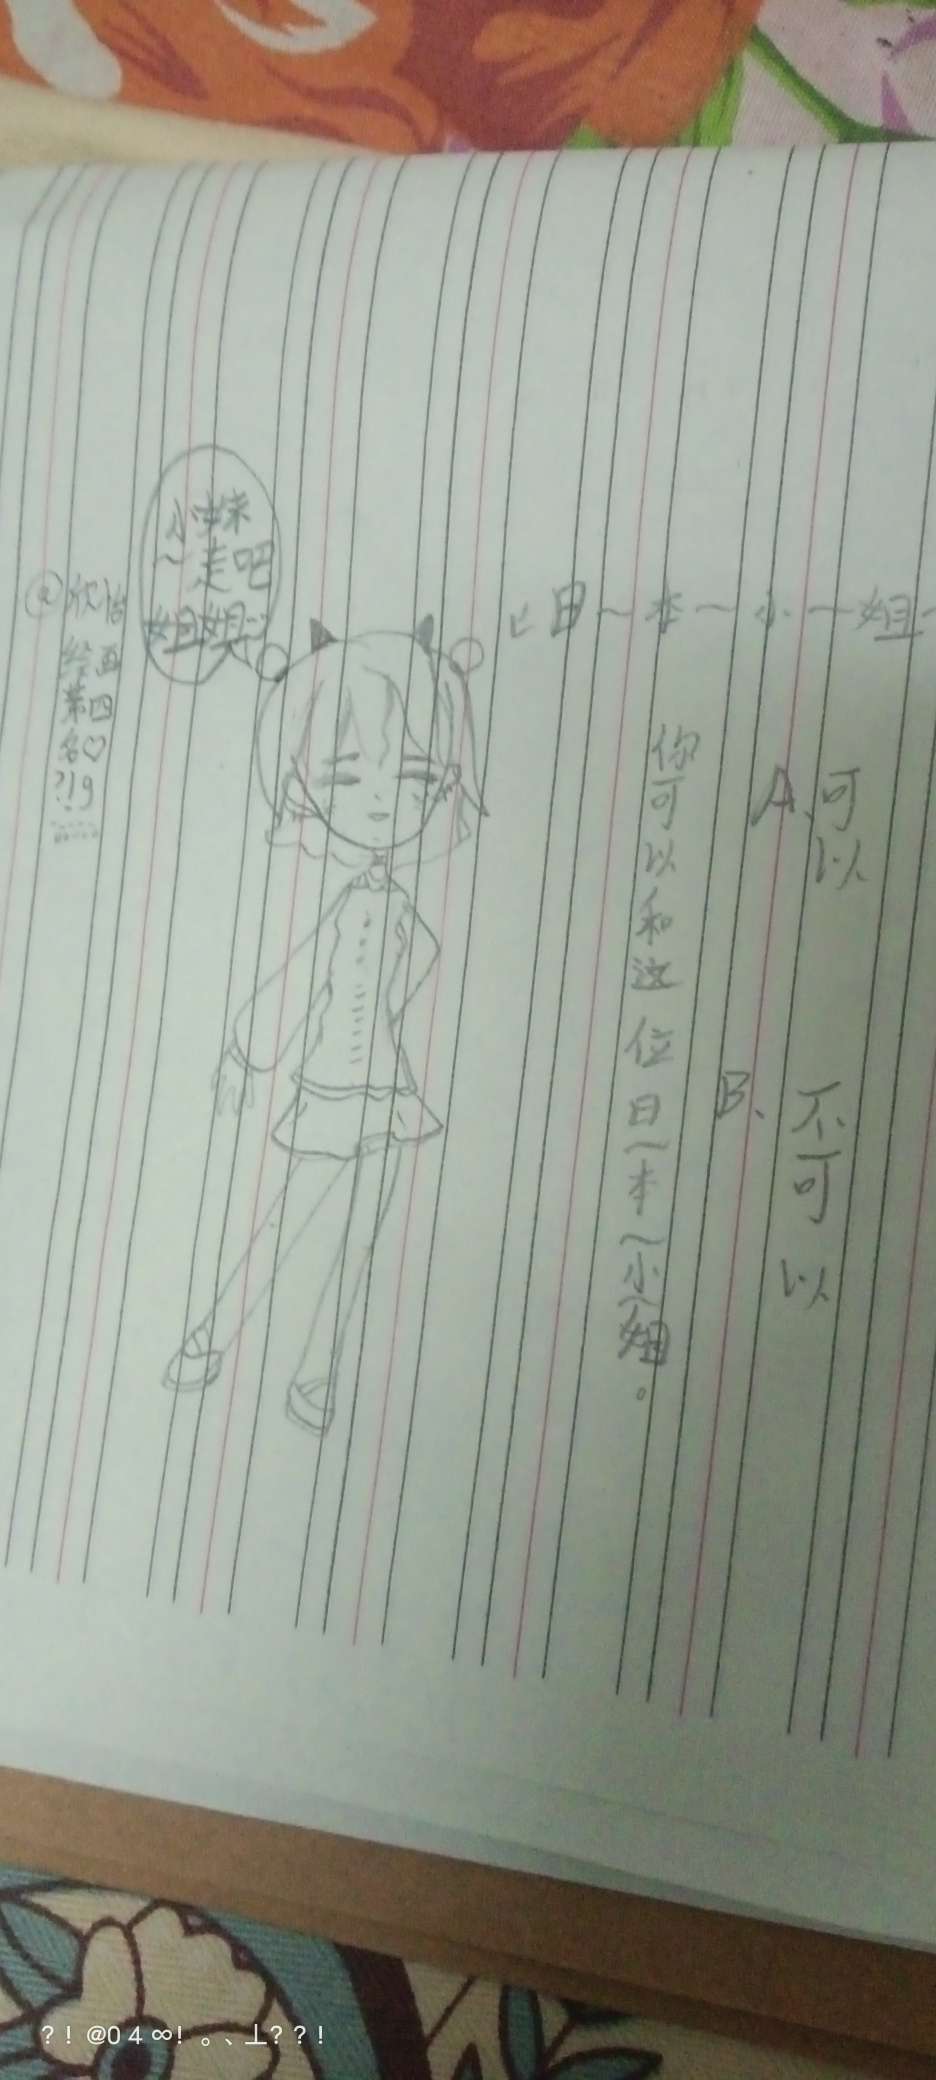 小妹
~走吧
姐姐~
@欣怡
绘画
第四
名♡
?!9
↙日~本~小~姐~
你可以和这位日~本~小~姐。
A、可以
B、不可以
?！@04∞！。、丄??！